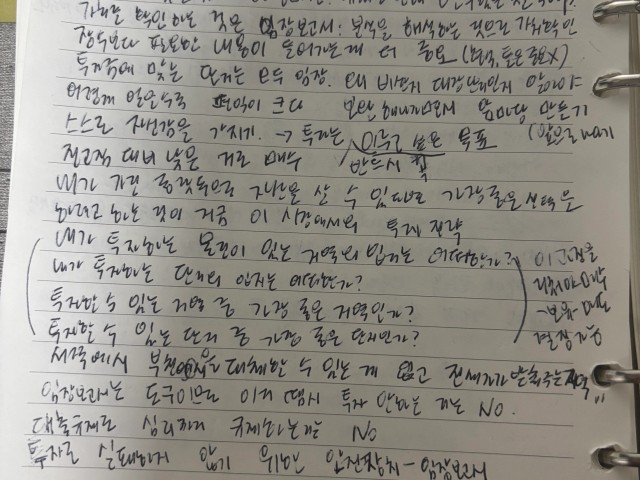 가치를 확인하는 것은 임장보고서: 분석을 해석하는 것으로 가치확인
장수보다 필요한 내용이 들어가는게 더 중요
투자금에 맞는 단지는 모두 임장. 왜 비싼지 대장단지인지 알아야
어렵게 얻을수록 기억이 크다 보단 해나가면서 앞마당 만들기
스스로 자신감을 가지기. → 투자는 이루고 싶은 목표
전고점 대비 낮은 거로 매수 반드시
내가 가진 종잣돈으로 자산을 살 수 있다면 가장 좋은 선택을
하려고 하는 것이 지금 이 시장에서의 투자 전략
내가 투자하는 물건이 있는 지역의 입지는 어떠한가? 이 과정을
내가 투자하는 단지의 입지는 어떠한가? 거쳐야 매수
투자할 수 있는 지역 중 가장 좋은 지역인가? -보유-매도
투자할 수 있는 단지 중 가장 좋은 단지인가? 결정 가능
서쪽에서 대체할 수 있는 게 없고 전세가가 받쳐주는 지역
임장보고서는 도구이므로 이거 땜시 투자 안하는 거는 NO.
대출규제로 심리까지 규제하는건 NO
투자로 실패하지 않기 위한 안전장치 - 임장보고서